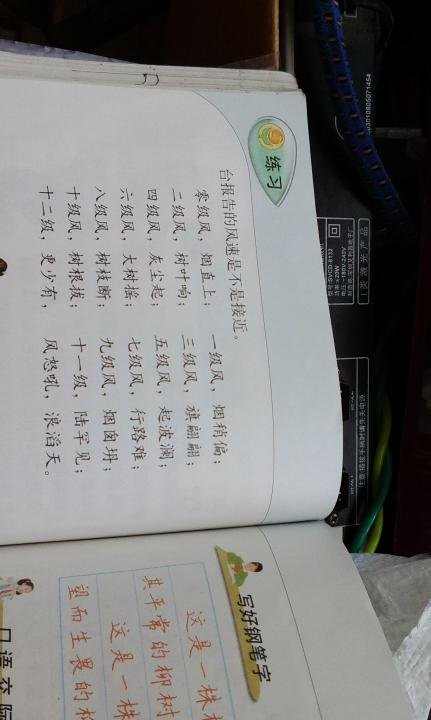 练习
台报告的风速是不是接近。
零级风，烟直上； 一级风，烟稍偏；
二级风，树叶响； 三级风，旗翩翩；
四级风，灰尘起； 五级风，起波澜；
六级风，大树摇； 七级风，行路难；
八级风，树枝断； 九级风，烟囱坍；
十级风，树根拔； 十一级，陆罕见；
十二级，更少有， 风怒吼，浪滔天。
写好钢笔字
这是一株
其平常的柳树
这是一株
望而生畏的柳
口语交际
I类激光产品